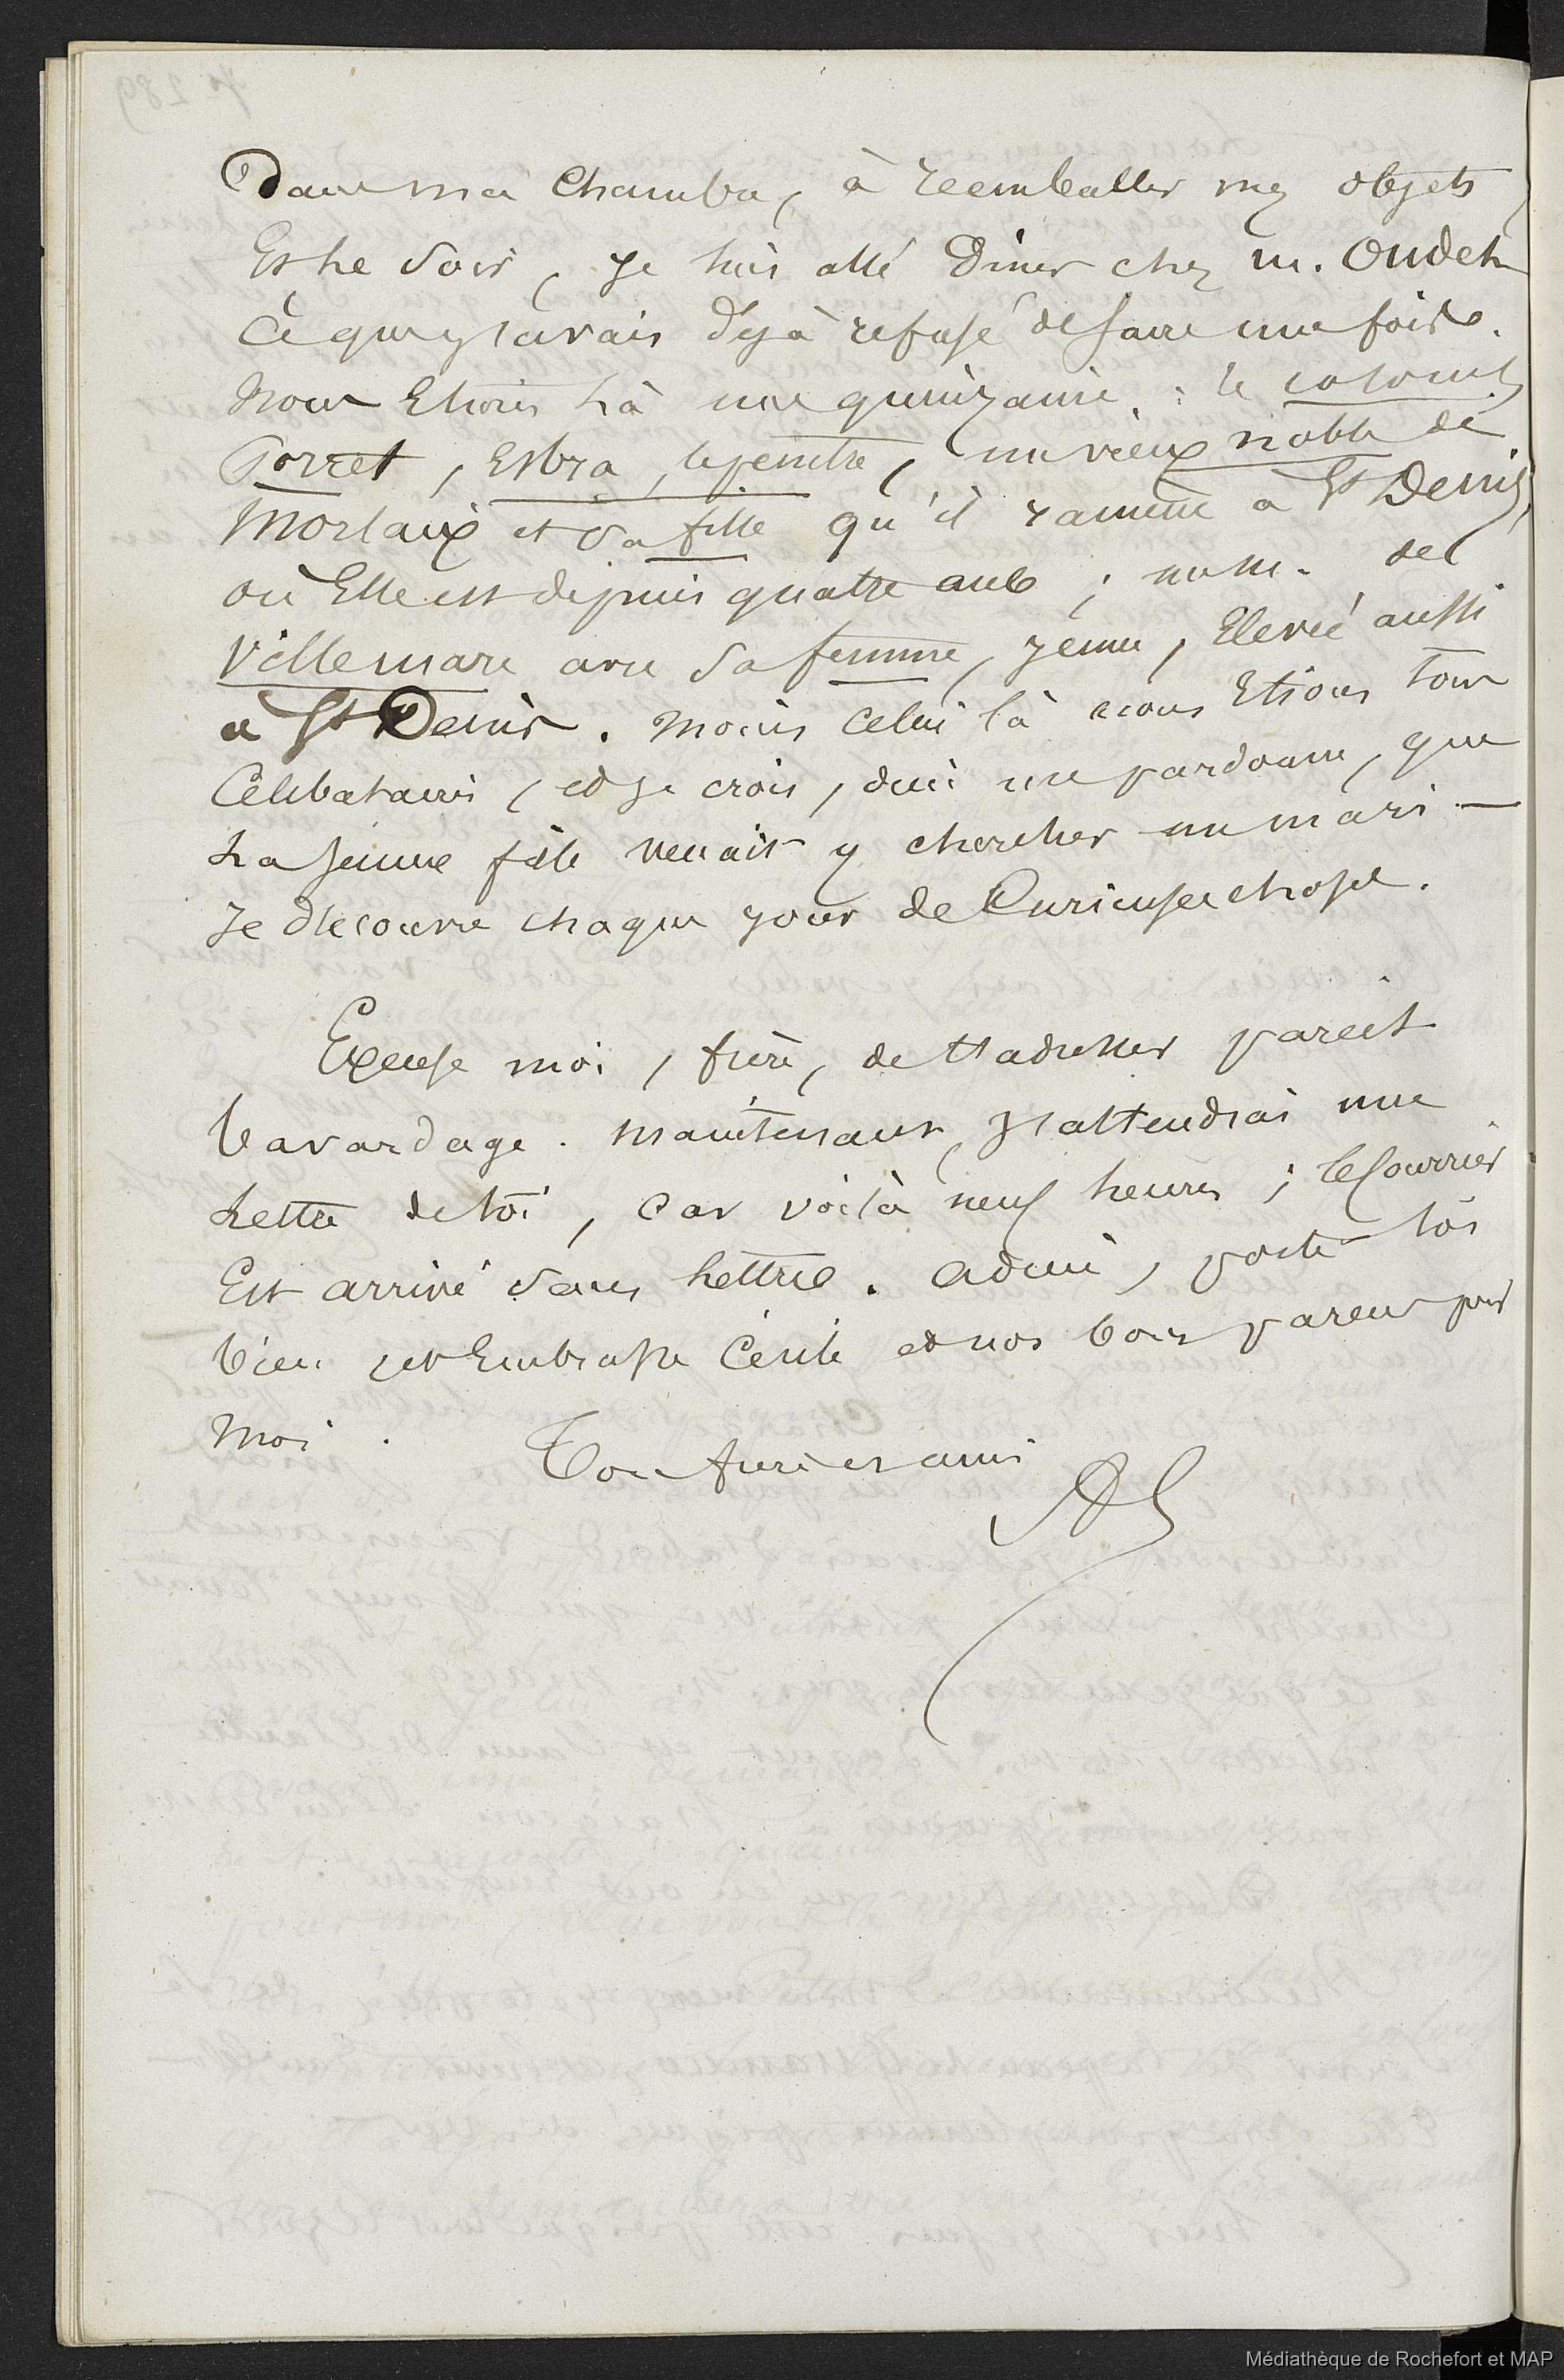 Dans ma Chambre, à réemballer mes objets
Et le soir, je suis allé diner chez m. Oudet
Ce que j'avais déjà refusé de faire une fois.
Nous Etions là une quinzaine : le colonel
Porret, Esbra, le peintre, un vieux noble de
Morlaix et sa fille qu'il ramène à St Denis,
où Elle est depuis quatre ans ; m. de
Villemare avec sa femme, jeune, Elevée aussi
a St Denis. moins Celui là nous Etions tous
Celibataires, et je crois, dieu me pardonne, que
La jeune fille venait y chercher un mari —
Je découvre chaque jour de Curieuses choses.
Excuse moi, frère, de t'adresser pareil
bavardage. maintenant, j'attendrai une
Lettre de toi, Car voilà neuf heures ; le Courrier
Est arrivé sans Lettre. adieu, porte toi
bien et Embrasse Cécile et nos bons parens pour
moi.
Ton frère et ami
Médiathèque de Rochefort et MAP